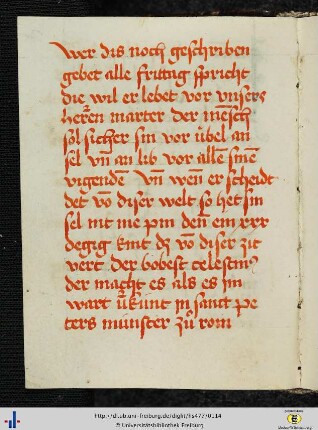 Wer dis noch geschriben
gebet alle fritag spricht
die wil er lebet vor vnsers
herren marter der mensch
sol sicher sin vor úbel an
sel vn̄ an lib vor allē sinē
vigendē vn̄ wen̄ er scheidt
det vō diser welt so het sin
sel nit me pin den̄ ein xxx
degig kint dz vō diser zit
vert der bobest celestin⁹
der macht es als es im
wart v̄kúnt in sant pe
ters múnster zů rom
http://dl.ub.uni-freiburg.de/diglit/hs477/0114
© Universitätsbibliothek Freiburg